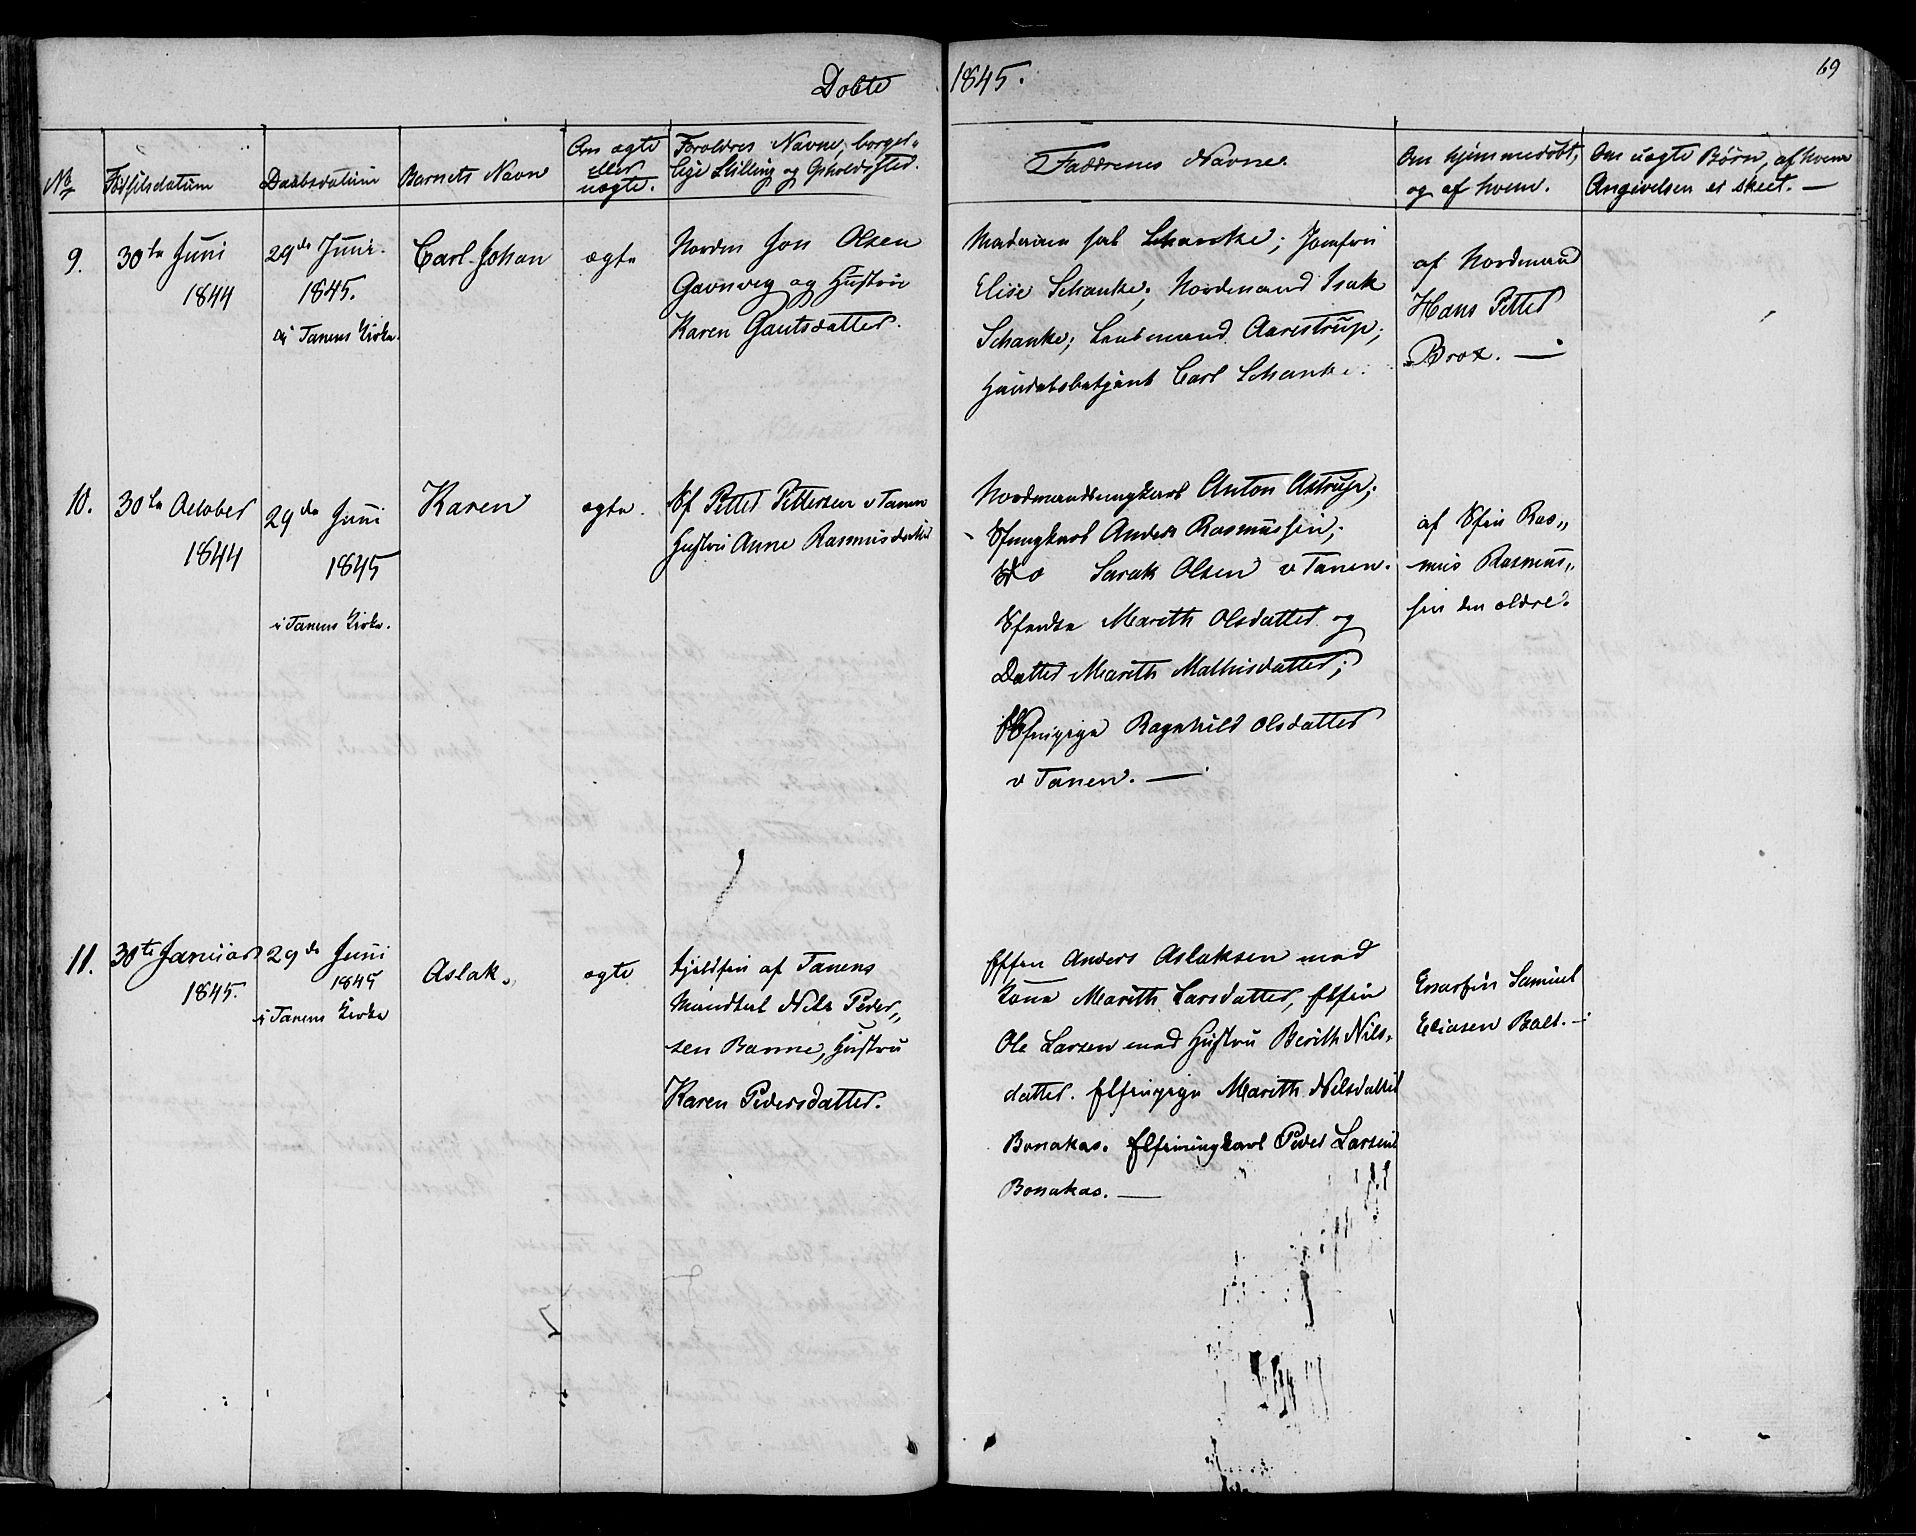 Døbte 1845.
69
No
Fødselsdatum
Daabsdatum
Barnets Navn
Om ægte
eller
uægte.
Forældres Navne, borger„
lige Stilling og Opholdssted.
Faddrenes Navne.
Om hjemmedøbt,
og af hvem.
Om uægte Børn, af hvem
Angivelsen er skeet. —
9.
30te Juni
1844
29de Juni.
1845.
i Tanens Kirke.
Carl Johan
ægte
Nordm Jon Olsen
Gavnveg og Hustru
Karen Gautsdatter.
Madamme Schanke; Jomfru
Elise Schanke; Nordmand Isak
Schanke; Lensmand Aarestrup;
Handelsbetjent Carl Schanke.
af Nordmand
Hans Petter
Brox. —
10.
30te October
1844
29de Juni
1845
i Tanens Kirke.
Karen
ægte.
Sf Petter Pettersen v Tanen
Hustru Anne Rasmusdatter
Nordmandsungkarl Anton Astrup;
Sfungkarl Anders Rasmussen;
do Sarak Olsen v Tanen.
Sfenke Marith Olsdatter og
Datter Marith Mathisdatter;
Sfinpige Ragnhild Olsdatter
v Tanen. —
af Sfin Ras„
mus Rasmus„
sen den ældre.
11.
30te Januar
1845.
29de Juni
1845
i Tanens Kirke
Aslak.
ægte
Fjeldfin af Tanens
Mandtal Nils Peder„
sen Banne, Hustru
Karen Pedersdatter.
Elffin Anders Aslaksen med
Kone Marith Larsdatter, Elffin
Ole Larsen med Hustru Berith Nils„
datter. Elfinpige Marith Nilsdatter
Bonakas. Elfinungkarl Peder Larsen
Bonakas. —
Samuel
Eliasen Balt. —